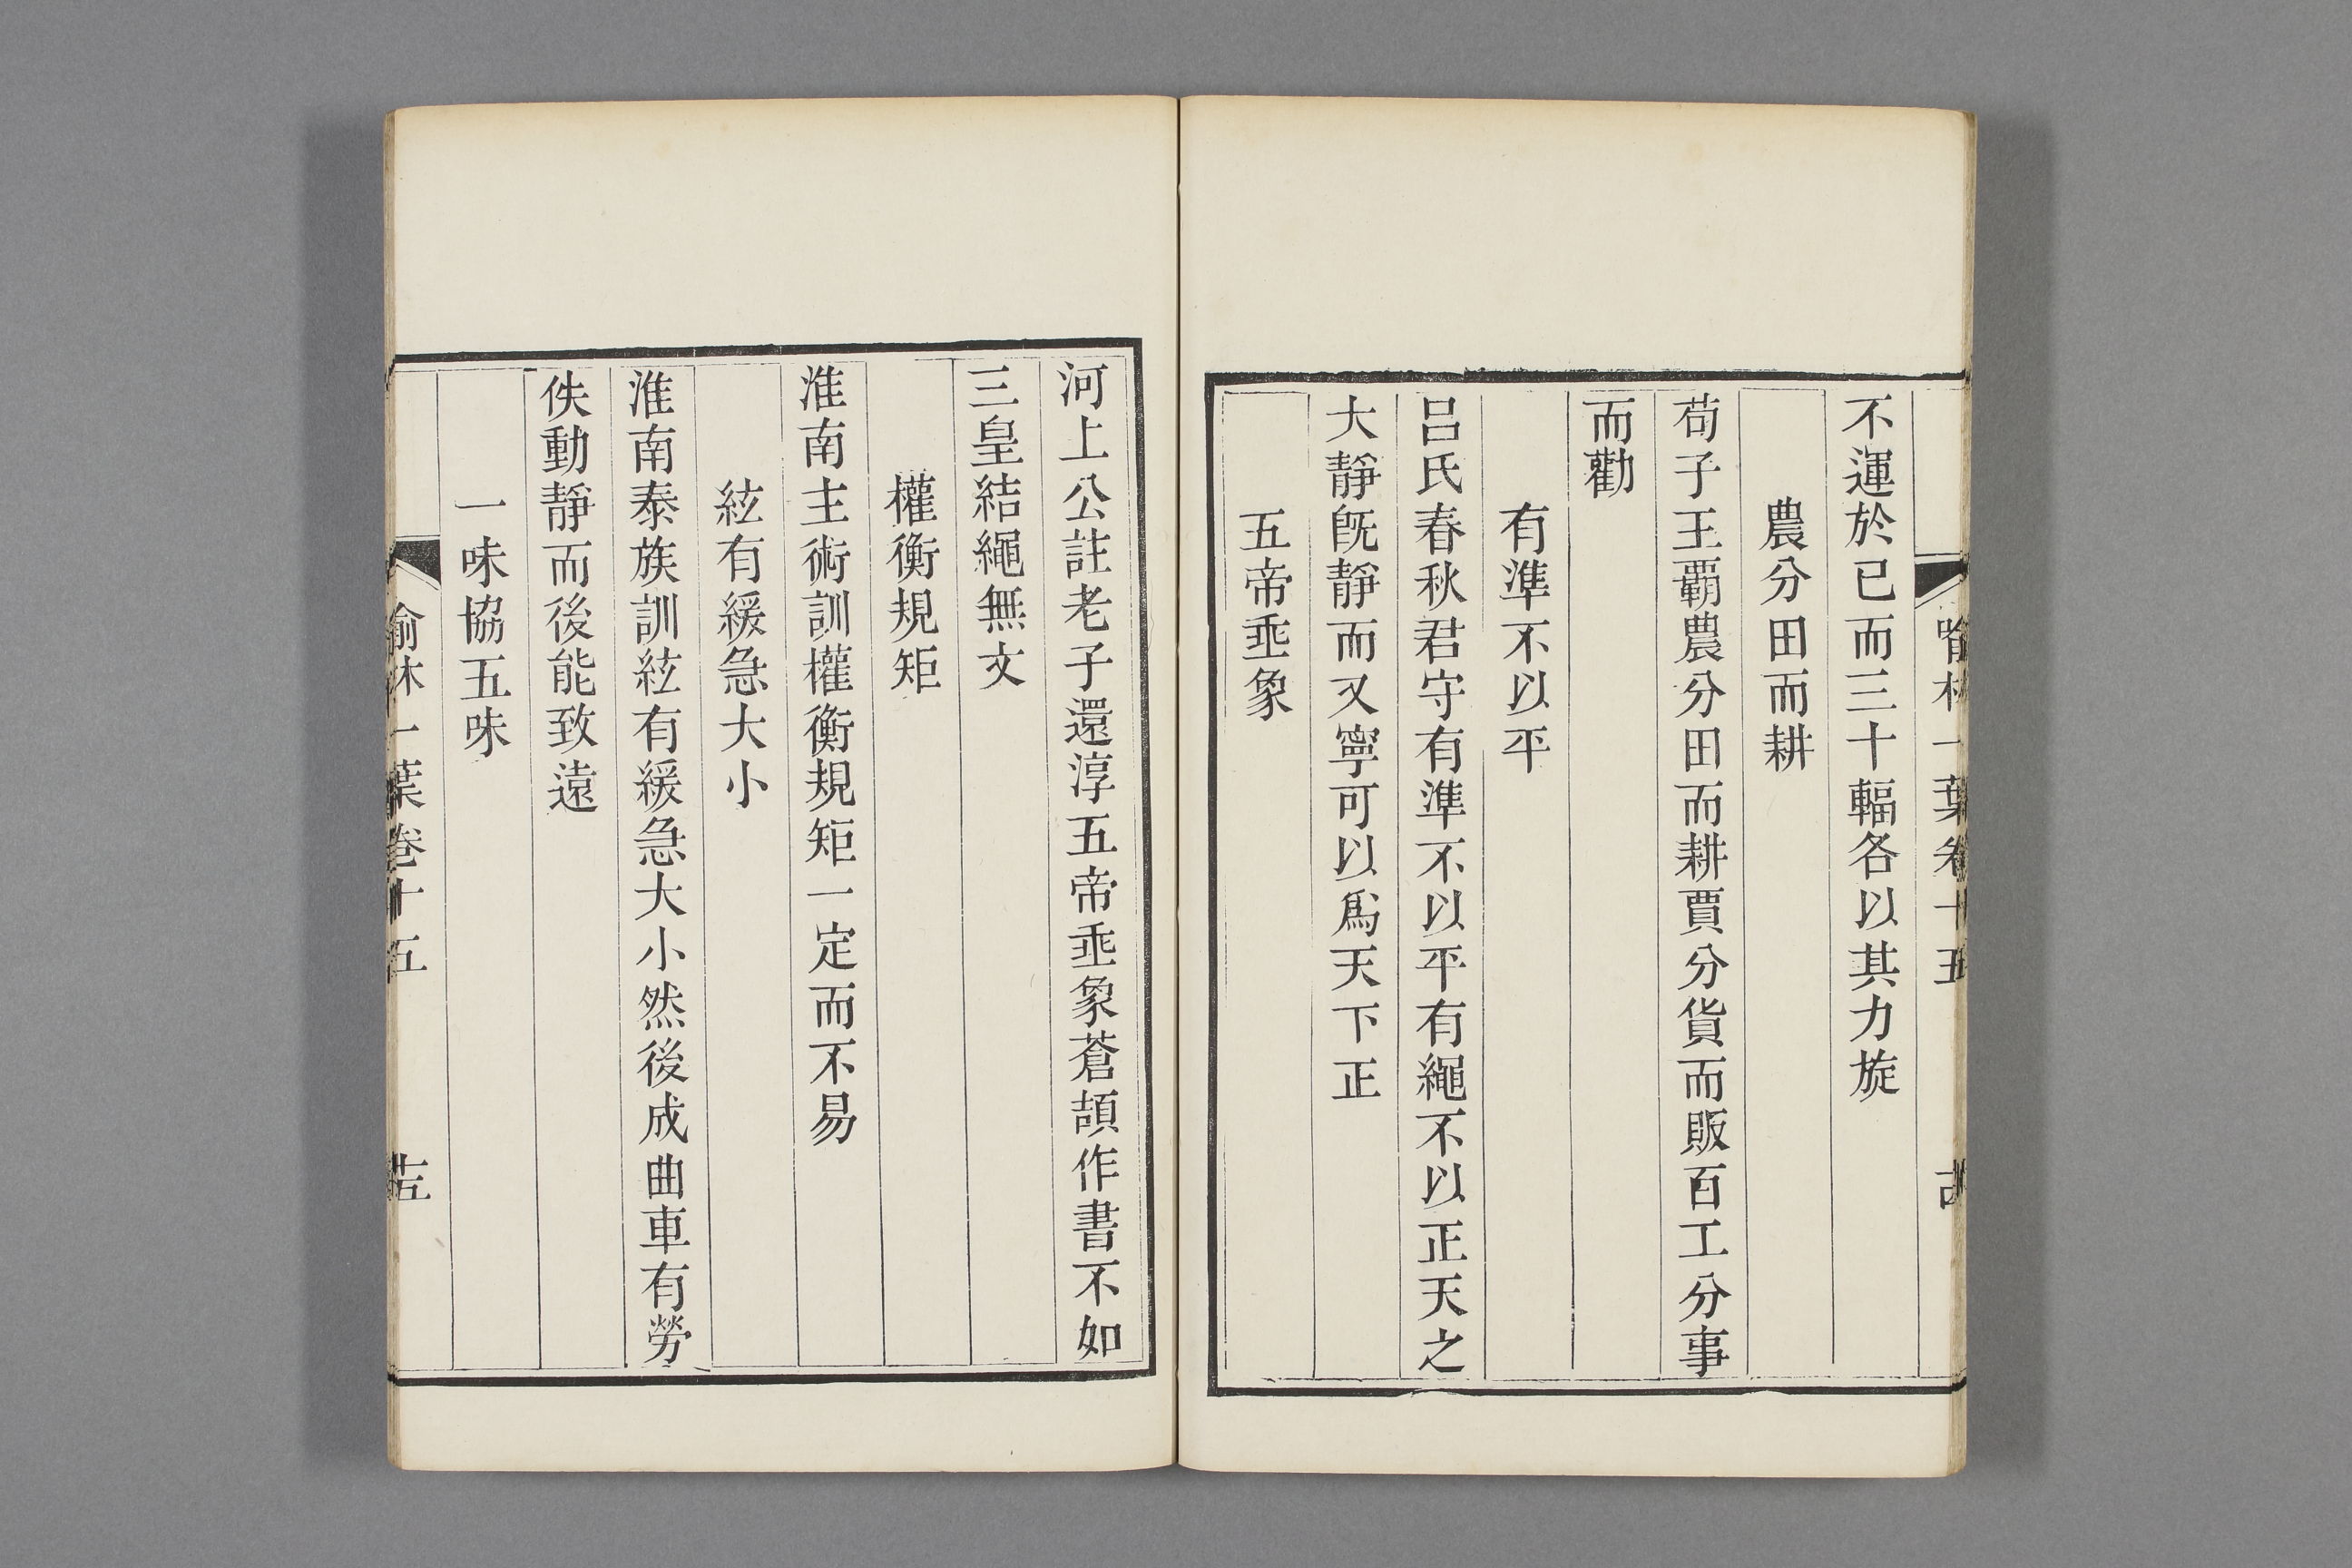 喻林一葉卷十五
不運於已而三十輻各以其力旋
農分田而耕
荀子王覇農分田而耕賈分貨而販百工分事
而勸
有準不以平
呂氏春秋君守有準不以平有繩不以正天之
大靜旣靜而又寧可以爲天下正
五帝埀象
河上公註老子還淳五帝埀象蒼頡作書不如
三皇結繩無文
權衡規矩
淮南主術訓權衡規矩一定而不易
絃有緩急大小
淮南泰族訓絃有緩急大小然後成曲車有勞
佚動靜而後能致遠
一味協五味
喻林一葉卷十五
十五